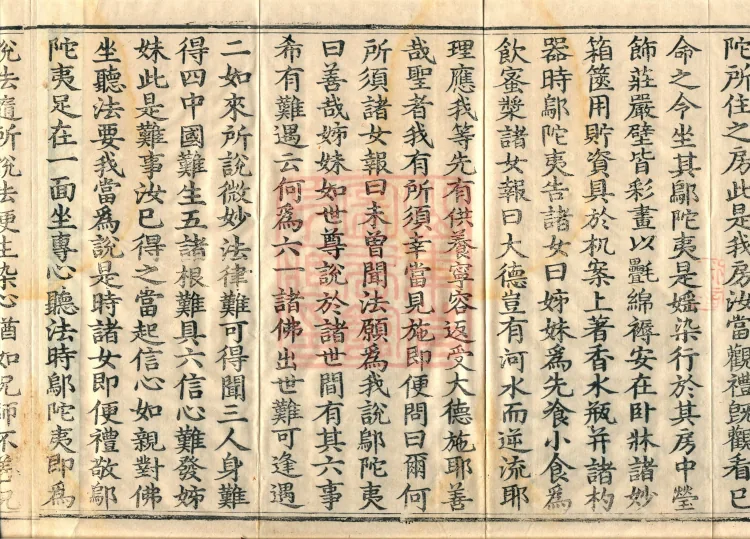 陀所住之房此是我房汝當觀禮既觀看已
命之令坐其鄔陀夷是婬染行於其房中瑩
飾莊嚴壁皆彩畫以㲲綿褥安在卧牀諸妙
箱篋用貯資具於机案上著香水瓶并諸杓
器時鄔陀夷告諸女曰姊妹爲先飡小食爲
飲蜜漿諸女報曰大德豈有河水而逆流耶
理應我等先有供養寧容返受大德施耶善
哉聖者我有所須幸當見施即便問曰爾何
所須諸女報曰未曾聞法願爲我說鄔陀夷
曰善哉姊妹如世尊說於諸世間有其六事
希有難遇云何爲六一諸佛出世難可逢遇
二如來所說微妙法律難可得聞三人身難
得四中國難生五諸根難具六信心難發姊
妹此是難事汝已得之當起信心如親對佛
坐聽法要我當爲說是時諸女即便禮敬鄔
陀夷足在一面坐專心聽法時鄔陀夷即爲
說法隨所說法便生染心猶如咒師不善咒